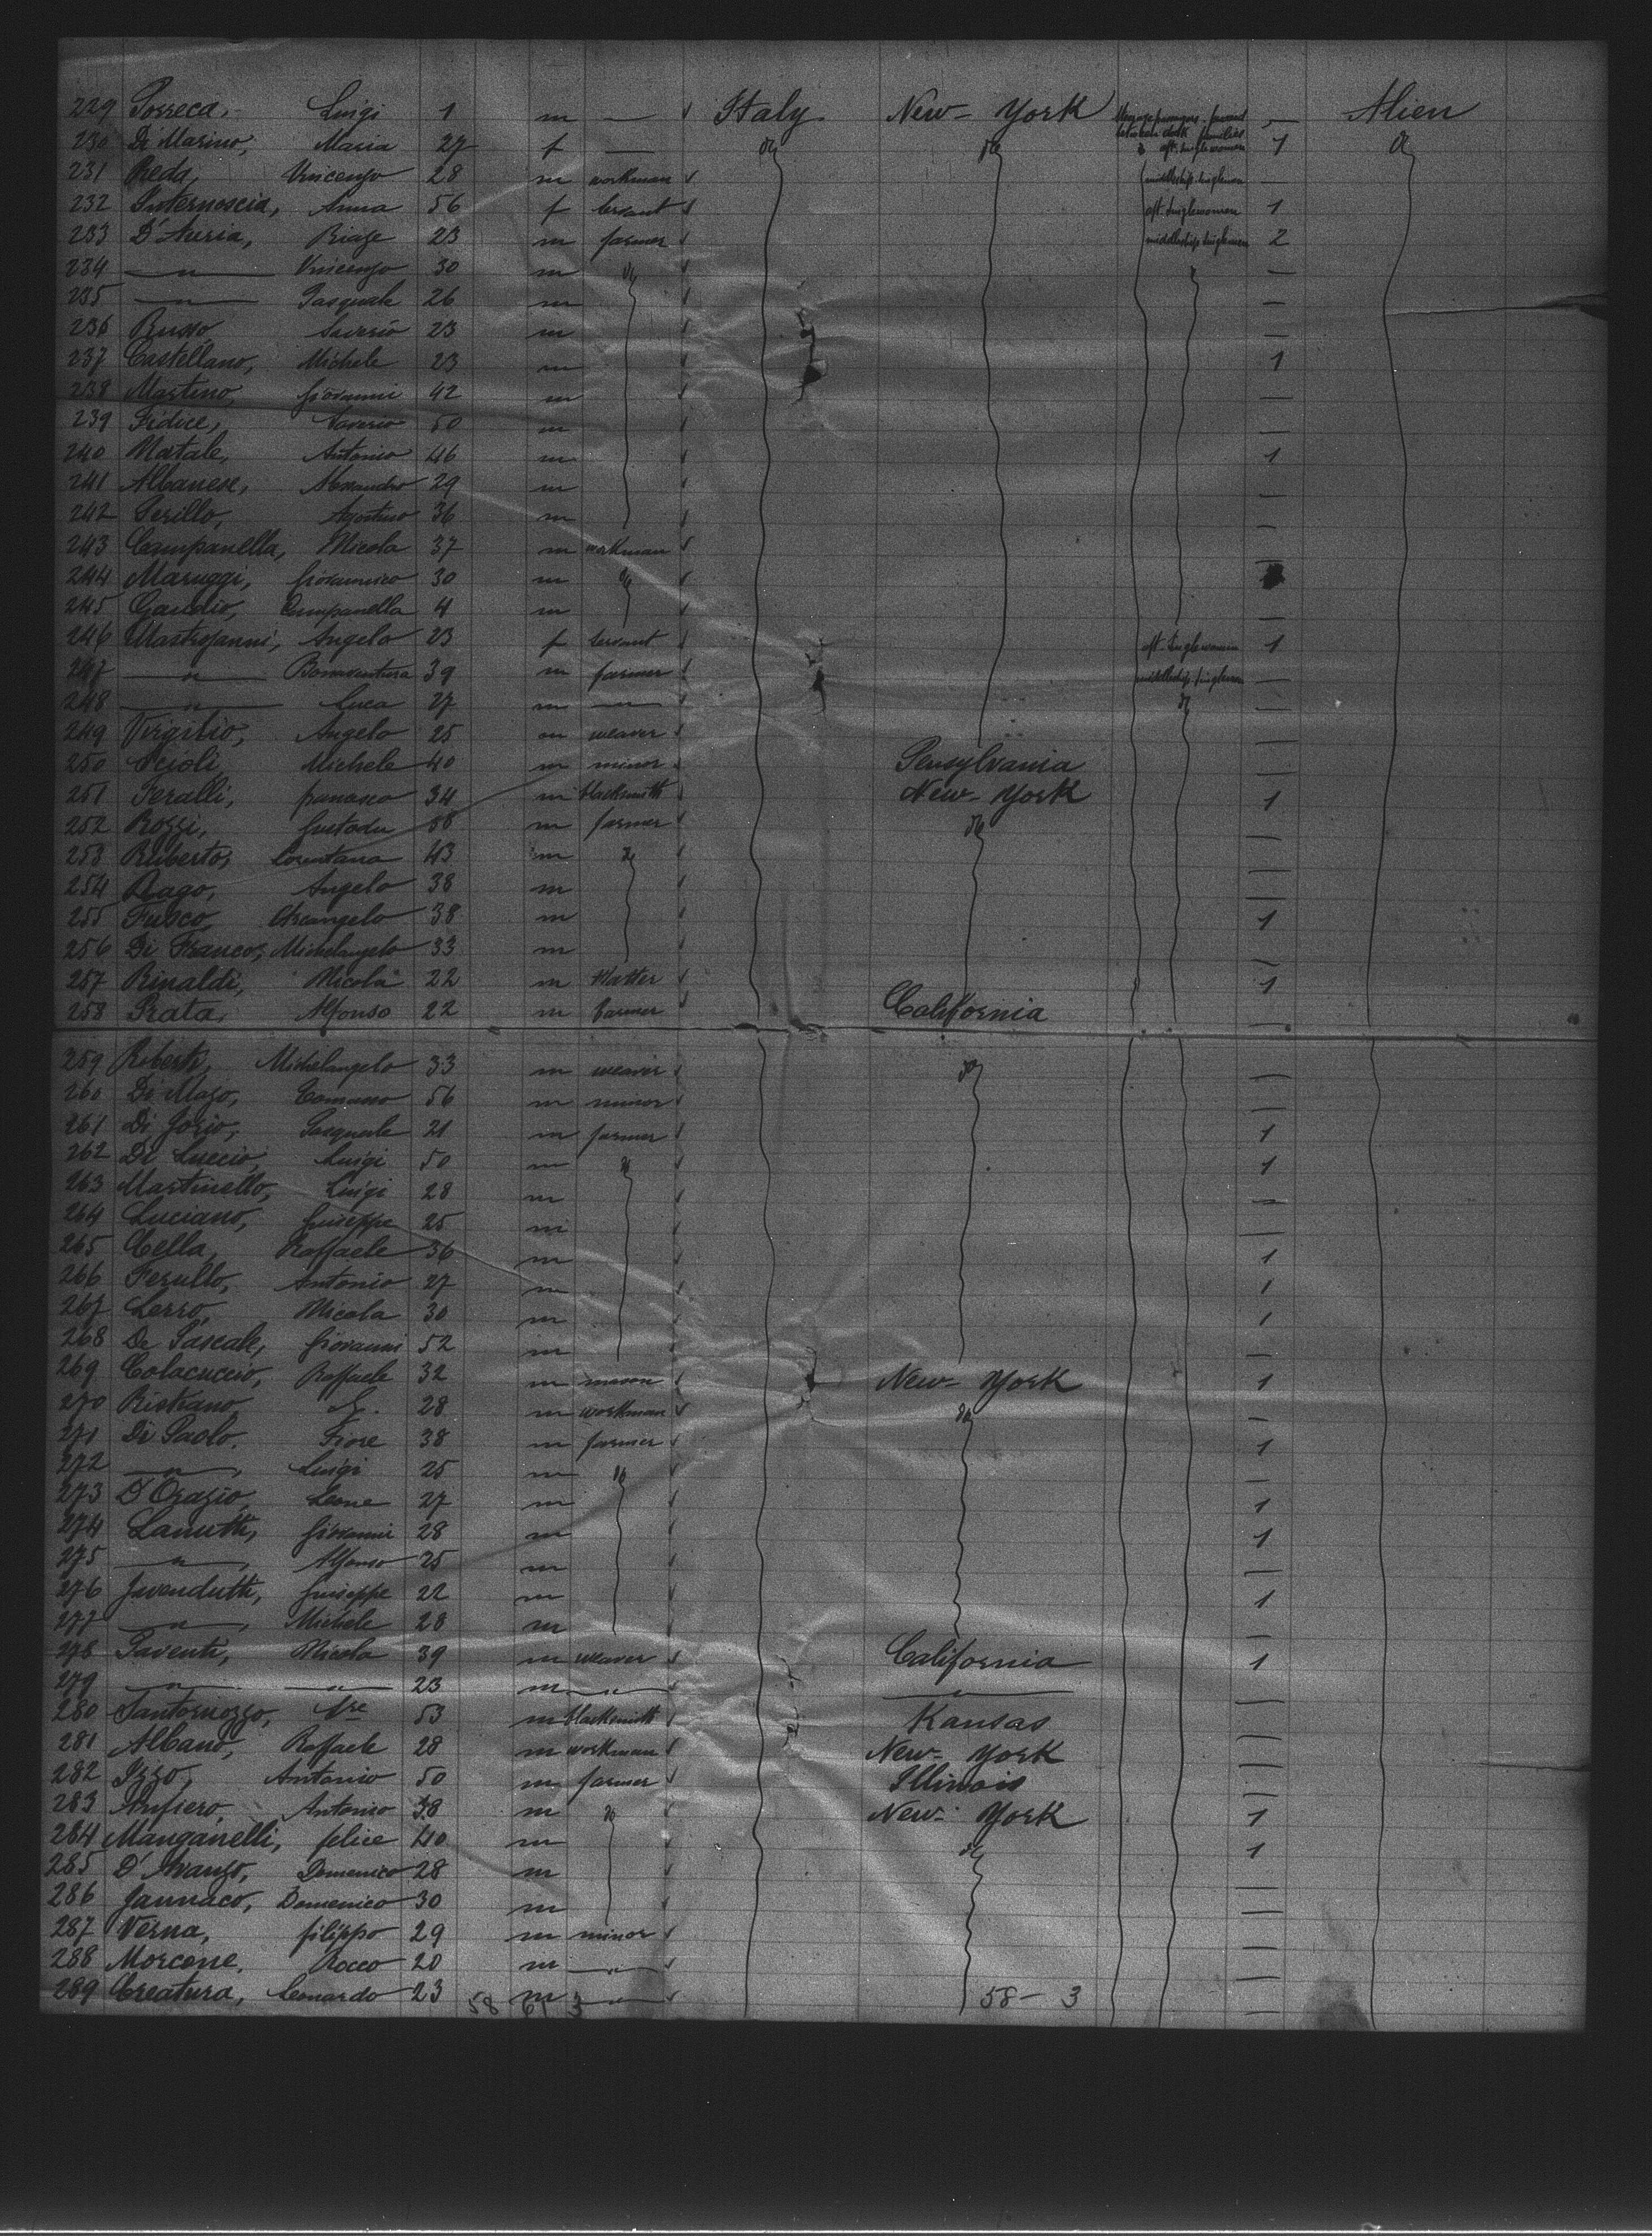 229 Porreca, Luigi 1 m — Italy New-York — Alien
230 Di Marino, Maria 27 f — do do aft. singlewomen 1 do
231 Reda, Vincenzo 28 m workman middleship singlemen —
232 Anna 56 f servant aft. singlewomen 1
233 D'Auria, Biage 23 m farmer middleship singlemen 2
234 —"— Vincenzo 30 m do —
235 —"— Pasquale 26 m —
236 Russo Saverio 23 m —
237 Castellano, Michele 23 m 1
238 Martino, Giovanni 42 m —
239 Fidice, Saverio 50 m —
240 Natale, Antonio 46 m 1
241 Albanese, Alessandro 29 m —
242 Perillo, Agostino 36 m —
243 Campanella, Nicola 37 m workman
244 Maruggi, 30 m do
245 Gaudio, Campanella 4 m —
246 Mastrojanni, Angelo 23 f servant aft. singlewomen 1
247 —"— Bonaventura 39 m farmer middleship singlemen —
248 —"— Luca 27 m —"— do —
249 Virgilio, Angelo 25 m weaver —
250 Scioli, Michele 40 m minor Pensylvania —
251 Feralli, 34 m blacksmith New-York 1
252 Rozzi, 58 m farmer do —
253 Ruberto, 43 m do —
254 Rago, Angelo 38 m —
255 Fusco, Arcangelo 38 m 1
256 Di Franco, Michelangelo 33 m —
257 Rinaldi, Nicola 22 m 1
258 Prata, Alfonso 22 m farmer California —
259 Roberti, Michelangelo 33 m weaver do —
260 Di Mazo, Tomasso 56 m minor —
261 Di Jorio, Pasquale 21 m farmer 1
262 Di Luccio, Luigi 50 m do 1
263 Martinello, Luigi 28 m —
264 Luciano, Giuseppe 25 m —
265 Cella, Raffaele 36 m 1
266 Ferullo, Antonio 27 m 1
267 Lerro, Nicola 30 m 1
268 De Pascale, Giovanni 52 m —
269 Colacuccio, Raffaele 32 m mason New-York 1
270 Ristrano 28 m workman do —
271 Di Paolo, Fiore 38 m farmer 1
272 —"—, Luigi 25 m do —
273 D'Orazio, Leone 27 m 1
274 Lanutti, Giovanni 28 m 1
275 —"—, Alfonso 25 m —
276 Javendutti, Giuseppe 22 m 1
277 —"—, Michele 28 m —
278 Paventi, Nicola 39 m weaver California 1
279 —"— —"— 23 m —"— —"— —
280 Santomozzo, 53 m blacksmith Kansas —
281 Albano, Raffaele 28 m workman New-York —
282 Izzo, Antonio 50 m farmer Illinois —
283 Anfiero, Antonio 38 m do New-York 1
284 Manganelli, felice 40 m do 1
285 D'Avanzo, Domenico 28 m —
286 Jannaco, Domenico 30 m —
287 Verna, filippo 29 m minor —
288 Morcone, Rocco 20 m —"— —
289 Creatura, Leonardo 23 m —"— —
58 61 3 58-3